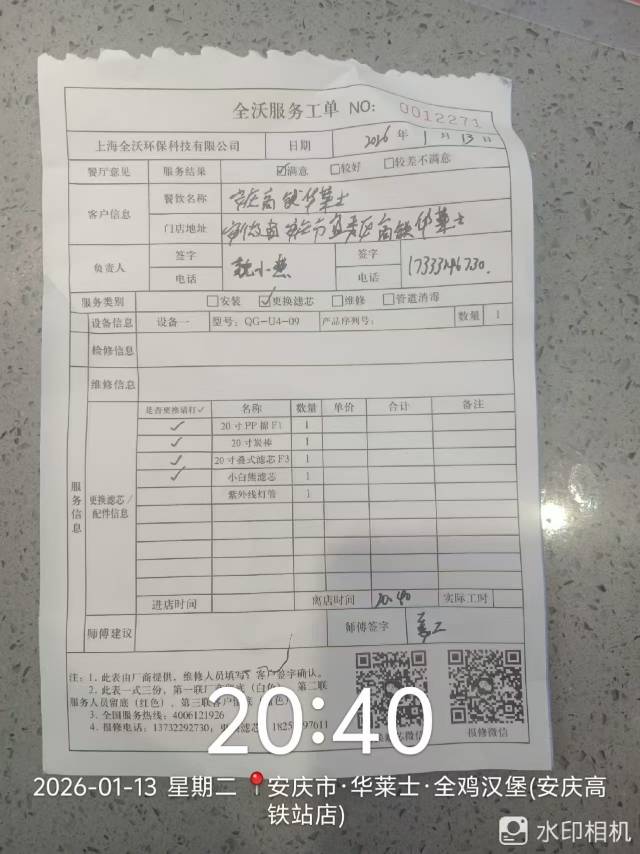 全沃服务工单 NO: 0012271
上海全沃环保科技有限公司 日期 2026 年 1 月 13 日
餐厅意见 服务结果 ☑满意 □较好 □较差不满意
客户信息 餐饮名称 安庆高铁华莱士
门店地址 安徽省安庆市宜秀区高铁华莱士
负责人 签字 魏小燕 签字
电话 电话 17333246730.
服务类别 □安装 ☑更换滤芯 □维修 □管道消毒
设备信息 设备一 型号: QG-U4-09 产品序列号: 数量 1
检修信息
维修信息
服务信息
更换滤芯/配件信息
是否更换请打✓ 名称 数量 单价 合计 备注
✓ 20寸PP棉F1 1
✓ 20寸炭棒 1
✓ 20寸叠式滤芯F3 1
✓ 小白熊滤芯 1
紫外线灯管 1
进店时间 离店时间 20:40 实际工时
师傅建议 师傅签字
注: 1. 此表由厂商提供, 维修人员填写, 客户签字确认。
2. 此表一式三份, 第一联厂商留底（白色） 第二联
服务人员留底（红色）、第三联客户留底
3. 全国服务热线: 4006121926
4. 报修电话: 13732292730,
报修微信
20:40
2026-01-13 星期二 安庆市·华莱士·全鸡汉堡(安庆高
铁站店)
水印相机